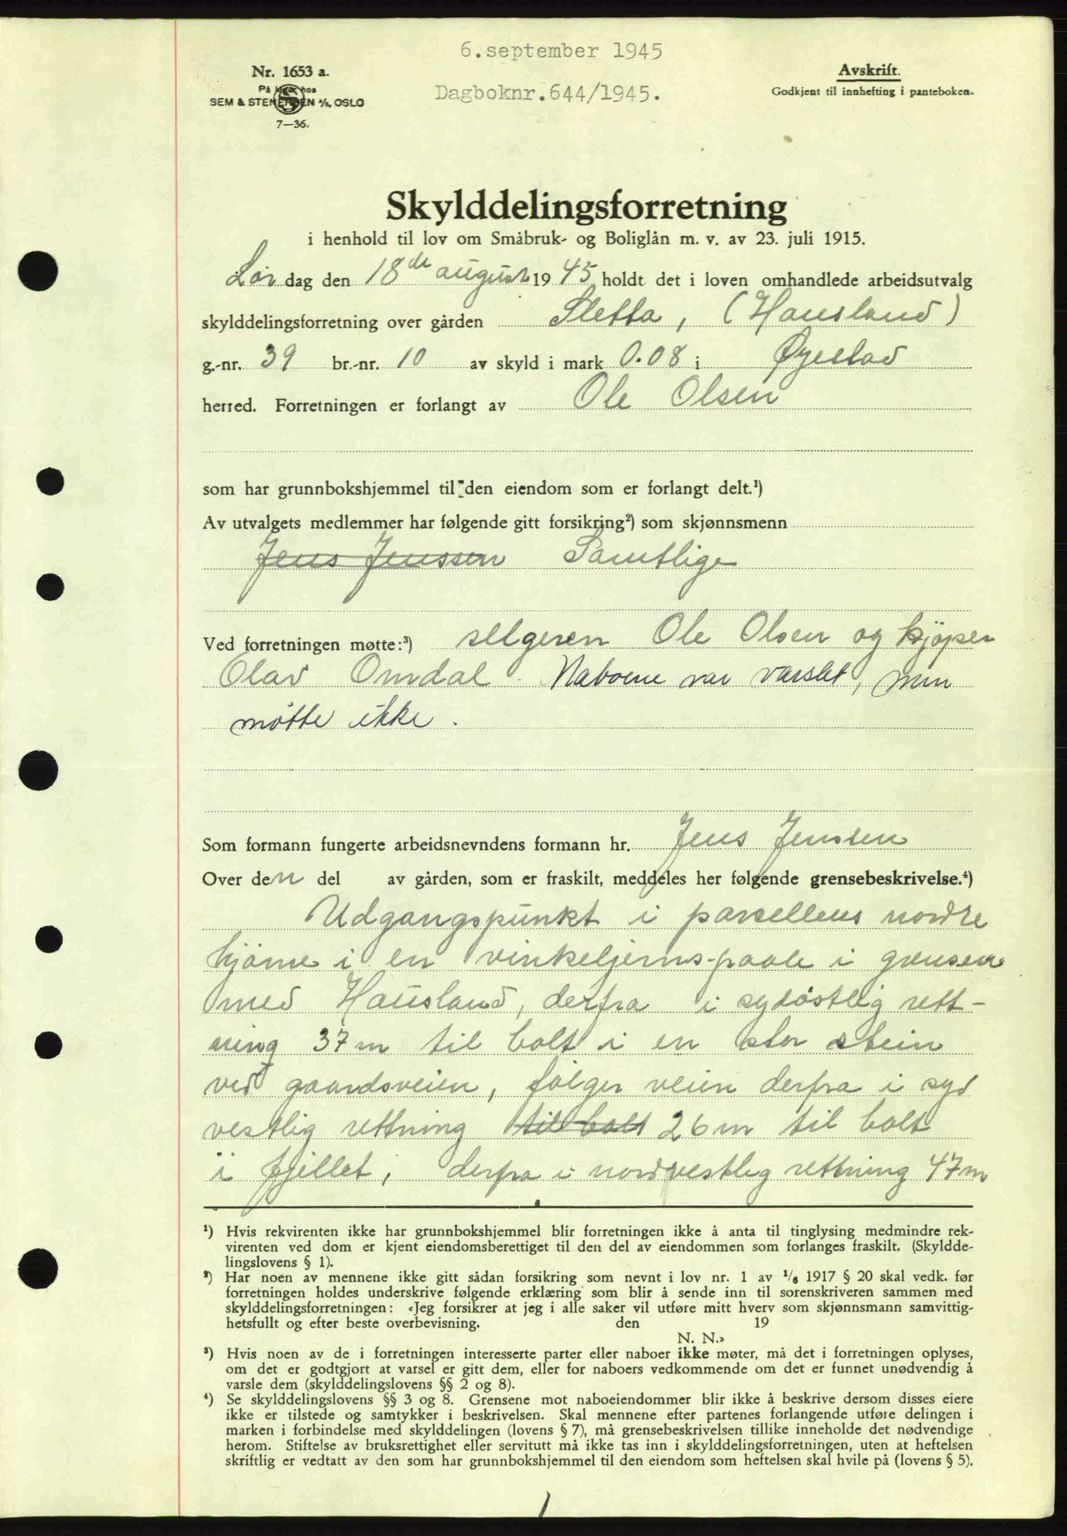 6.september 1945
Dagboknr.644/1945.
Nr. 1653 a.
På lager hos
SEM & STENERSEN A/S, OSLO
7—36.
Avskrift.
Godkjent til innhefting i panteboken.
Skylddelingsforretning
i henhold til lov om Småbruk- og Boliglån m. v. av 23. juli 1915.
Lør dag den 18de august 1945 holdt det i loven omhandlede arbeidsutvalg
skylddelingsforretning over gården Sletta, (Hausland)
g.-nr. 39 br.-nr. 10 av skyld i mark 0.08 i Øyestad
herred. Forretningen er forlangt av Ole Olsen
som har grunnbokshjemmel til den eiendom som er forlangt delt.¹)
Av utvalgets medlemmer har følgende gitt forsikring²) som skjønnsmenn
Jens Jenssen Samtlige
Ved forretningen møtte:³) selgeren Ole Olsen og kjöper
Olav Omdal. Naboene var varslet, men
møtte ikke.
Som formann fungerte arbeidsnevndens formann hr. Jens Jenssen
Over den del av gården, som er fraskilt, meddeles her følgende grensebeskrivelse.⁴)
Udgangspunkt i parsellens nordre
hjörne i en vinkeljernspaale i grensen
med Hausland, derfra i sydöstlig rett-
ning 37 m til bolt i en stor stein
ved gaardsveien, fölger veien derfra i syd
vestlig rettning til bolt 26 m til bolt
i fjellet, derfra i nordvestlig rettning 47 m
¹) Hvis rekvirenten ikke har grunnbokshjemmel blir forretningen ikke å anta til tinglysing medmindre rek-
virenten ved dom er kjent eiendomsberettiget til den del av eiendommen som forlanges fraskilt. (Skyldde-
lingslovens § 1).
²) Har noen av mennene ikke gitt sådan forsikring som nevnt i lov nr. 1 av 1/6 1917 § 20 skal vedk. før
forretningen holdes underskrive følgende erklæring som blir å sende inn til sorenskriveren sammen med
skylddelingsforretningen: «Jeg forsikrer at jeg i alle saker vil utføre mitt hverv som skjønnsmann samvittig-
hetsfullt og efter beste overbevisning. den 19
N. N.»
³) Hvis noen av de i forretningen interesserte parter eller naboer ikke møter, må det i forretningen oplyses,
om det er godtgjort at varsel er gitt dem, eller for naboers vedkommende om det er funnet unødvendig å
varsle dem (skylddelingslovens §§ 2 og 8).
⁴) Se skylddelingslovens §§ 3 og 8. Grensene mot naboeiendommer blir ikke å beskrive dersom disses eiere
ikke er tilstede og samtykker i beskrivelsen. Skal mennene efter partenes forlangende utføre delingen i
marken i forbindelse med skylddelingen (lovens § 7), må grensebeskrivelsen tillike inneholde det nødvendige
herom. Stiftelse av bruksrettighet eller servitutt må ikke tas inn i skylddelingsforretningen, uten at heftelsen
skriftlig er vedtatt av den som har grunnbokshjemmel til den eiendom som heftelsen skal hvile på (lovens § 5).